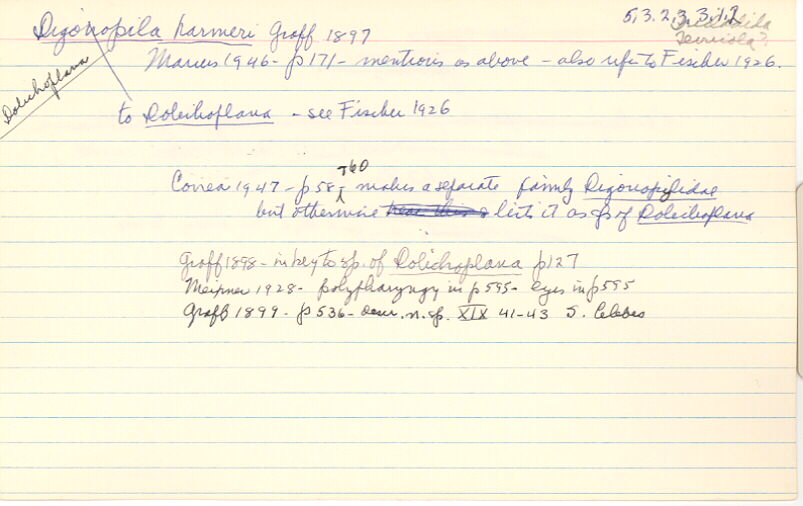 5,3.2,3,3.1.2
Tricladida
Terricola?
Digonopila harmeri Graff 1897
Marcus 1946 - p171 - mentions as above - also refer to Fischer 1926.
Dolichoplana
to Dolichoplana - see Fischer 1926
Correa 1947 - p58-T60 makes a separate family Digonopylidae
but otherwise lists it as sp of Dolichoplana
Graff 1898 - in key to sp. of Dolichoplana p127
Meixner 1928 - polypharyngy in p595 - eyes in p595
Graff 1899 - p536 - descr. n. sp. XIX 41-43 S. Celebes